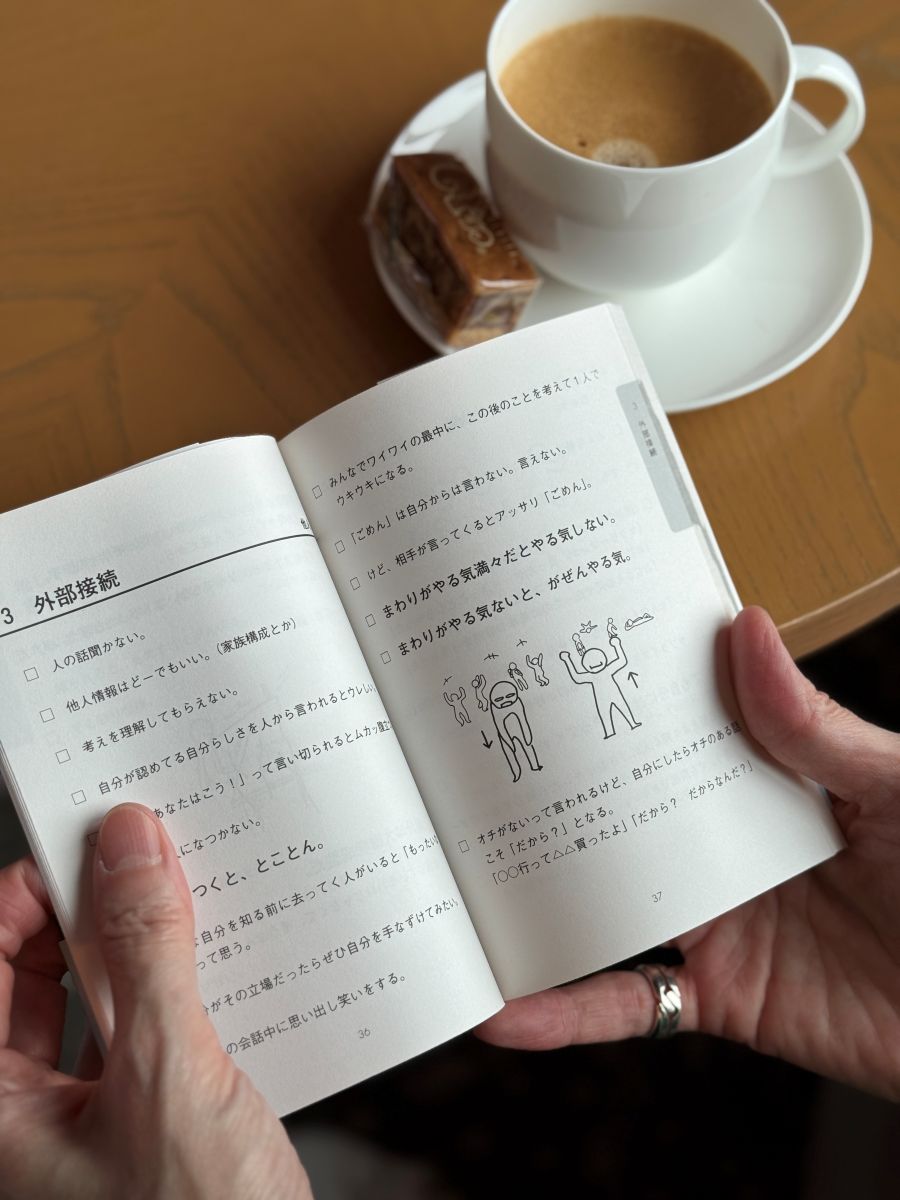 3 外部接続
□ 人の話聞かない。
□ 他人情報はどーでもいい。（家族構成とか）
□ 考えを理解してもらえない。
□ 自分が認めてる自分らしさを人から言われるとウレしい。
あなたはこう！」って言い切られるとムカッ腹立
になつかない。
つくと、とことん。
自分を知る前に去ってく人がいると「もったい
って思う。
がその立場だったらぜひ自分を手なずけてみたい。
の会話中に思い出し笑いをする。
36
3 外部接続
□ みんなでワイワイの最中に、この後のことを考えて1人で
ウキウキになる。
□ 「ごめん」は自分からは言わない。言えない。
□ けど、相手が言ってくるとアッサリ「ごめん」。
□ まわりがやる気満々だとやる気しない。
□ まわりがやる気ないと、がぜんやる気。
□ オチがないって言われるけど、自分にしたらオチのある話
こそ「だから？」となる。
「○○行って△△買ったよ」「だから？ だからなんだ？」
37